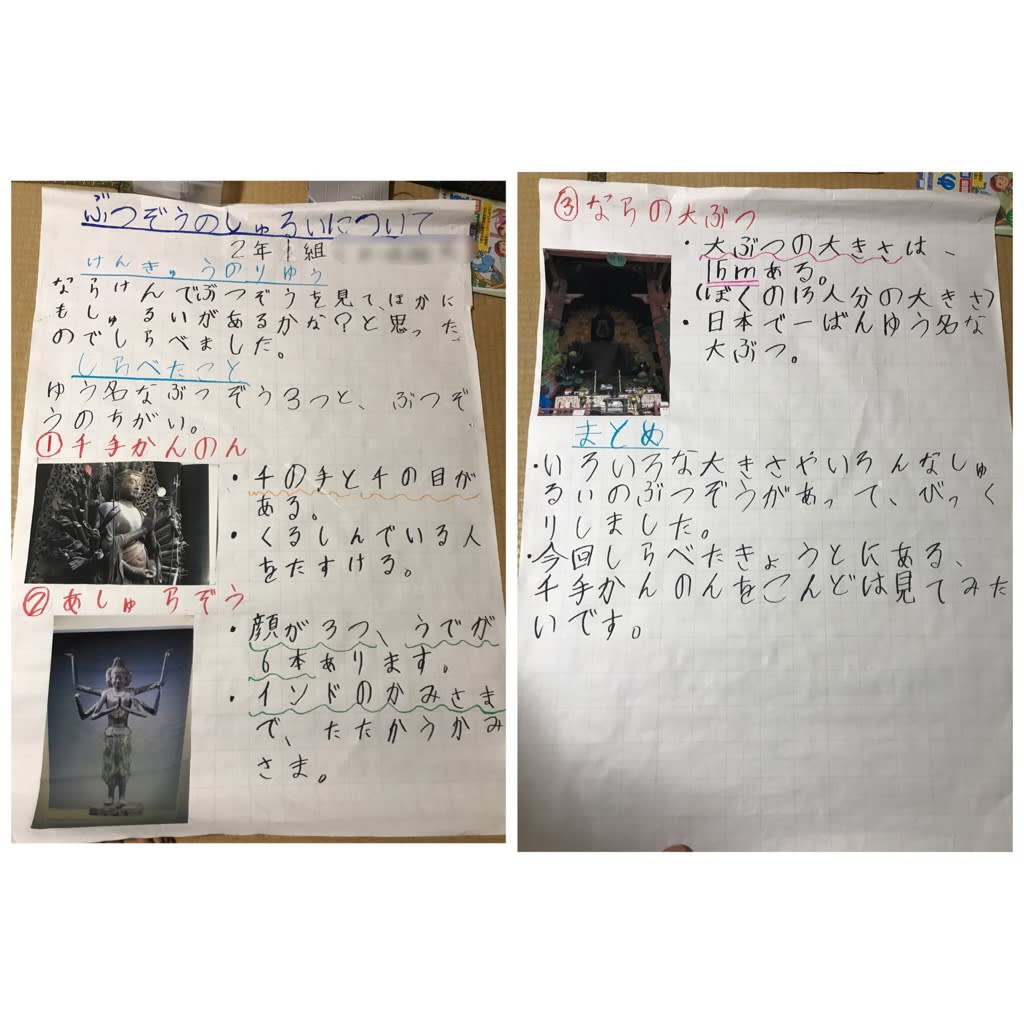 ぶつぞうのしゅるいについて
2年1組
けんきゅうのりゆう
ならけんでぶつぞうを見て、ほかに
もしゅるいがあるかな?と思った
のでしらべました。
しらべたこと
ゆう名なぶつぞう3つと、ぶつぞ
うのちがい。
①千手かんのん
・千の手と千の目が
ある。
・くるしんでいる人
をたすける。
②あしゅらぞう
・顔が3つ、うでが
6本あります。
・インドのかみさま
で、たたかうかみ
さま。
③ならの大ぶつ
・大ぶつの大きさは、
15mある。
(ぼくの13人分の大きさ)
・日本で一ばんゆう名な
大ぶつ。
まとめ
・いろいろな大きさやいろんなしゅ
るいのぶつぞうがあって、びっく
りしました。
・今回しらべたきょうとにある、
千手かんのんをこんどは見てみた
いです。